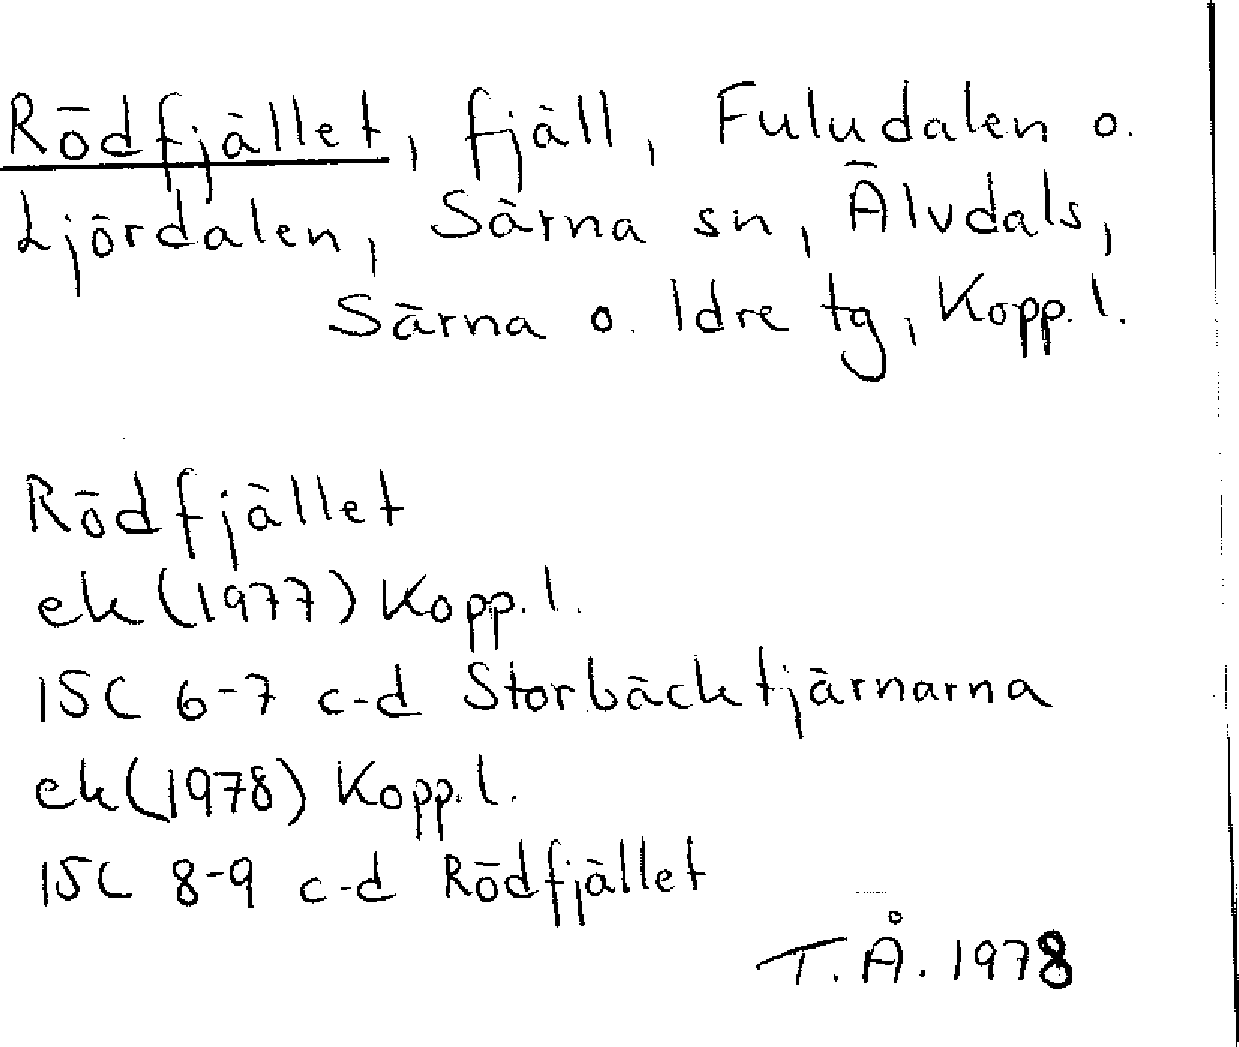 Rödfjället, fjäll, Fuludalen o.
Ljördalen, Särna sn, Älvdals,
Särna o. Idre tg, Kopp. l.
Rödfjället
ek (1977) Kopp. l.
15C 6-7 c-d Storbäcktjärnarna
ek (1978) Kopp. l.
15C 8-9 c-d Rödfjället
T. Å. 1978